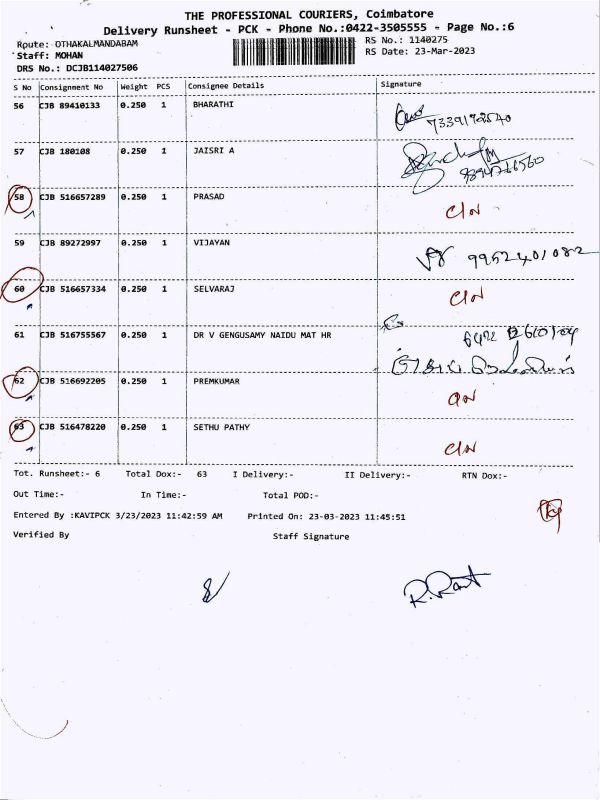 THE PROFESSIONAL COURIERS, Coimbatore
Delivery Runsheet - PCK - Phone No.:0422-3505555 - Page No.:6
Route: OTHAKALMANDABAM RS No.: 1140275
Staff: MOHAN RS Date: 23-Mar-2023
DRS No.: DCJB114027506
S No Consignment No Weight PCS Consignee Details Signature
56 CJB 89410133 0.250 1 BHARATHI
57 CJB 180108 0.250 1 JAISRI A
58 CJB 516657289 0.250 1 PRASAD C/N
59 CJB 89272997 0.250 1 VIJAYAN 9952401082
60 CJB 516657334 0.250 1 SELVARAJ C/N
61 CJB 516755567 0.250 1 DR V GENGUSAMY NAIDU MAT HR
62 CJB 516692205 0.250 1 PREMKUMAR C/N
63 CJB 516478220 0.250 1 SETHU PATHY C/N
Tot. Runsheet:- 6 Total Dox:- 63 I Delivery:- II Delivery:- RTN Dox:-
Out Time:- In Time:- Total POD:-
Entered By :KAVIPCK 3/23/2023 11:42:59 AM Printed On: 23-03-2023 11:45:51
Verified By Staff Signature